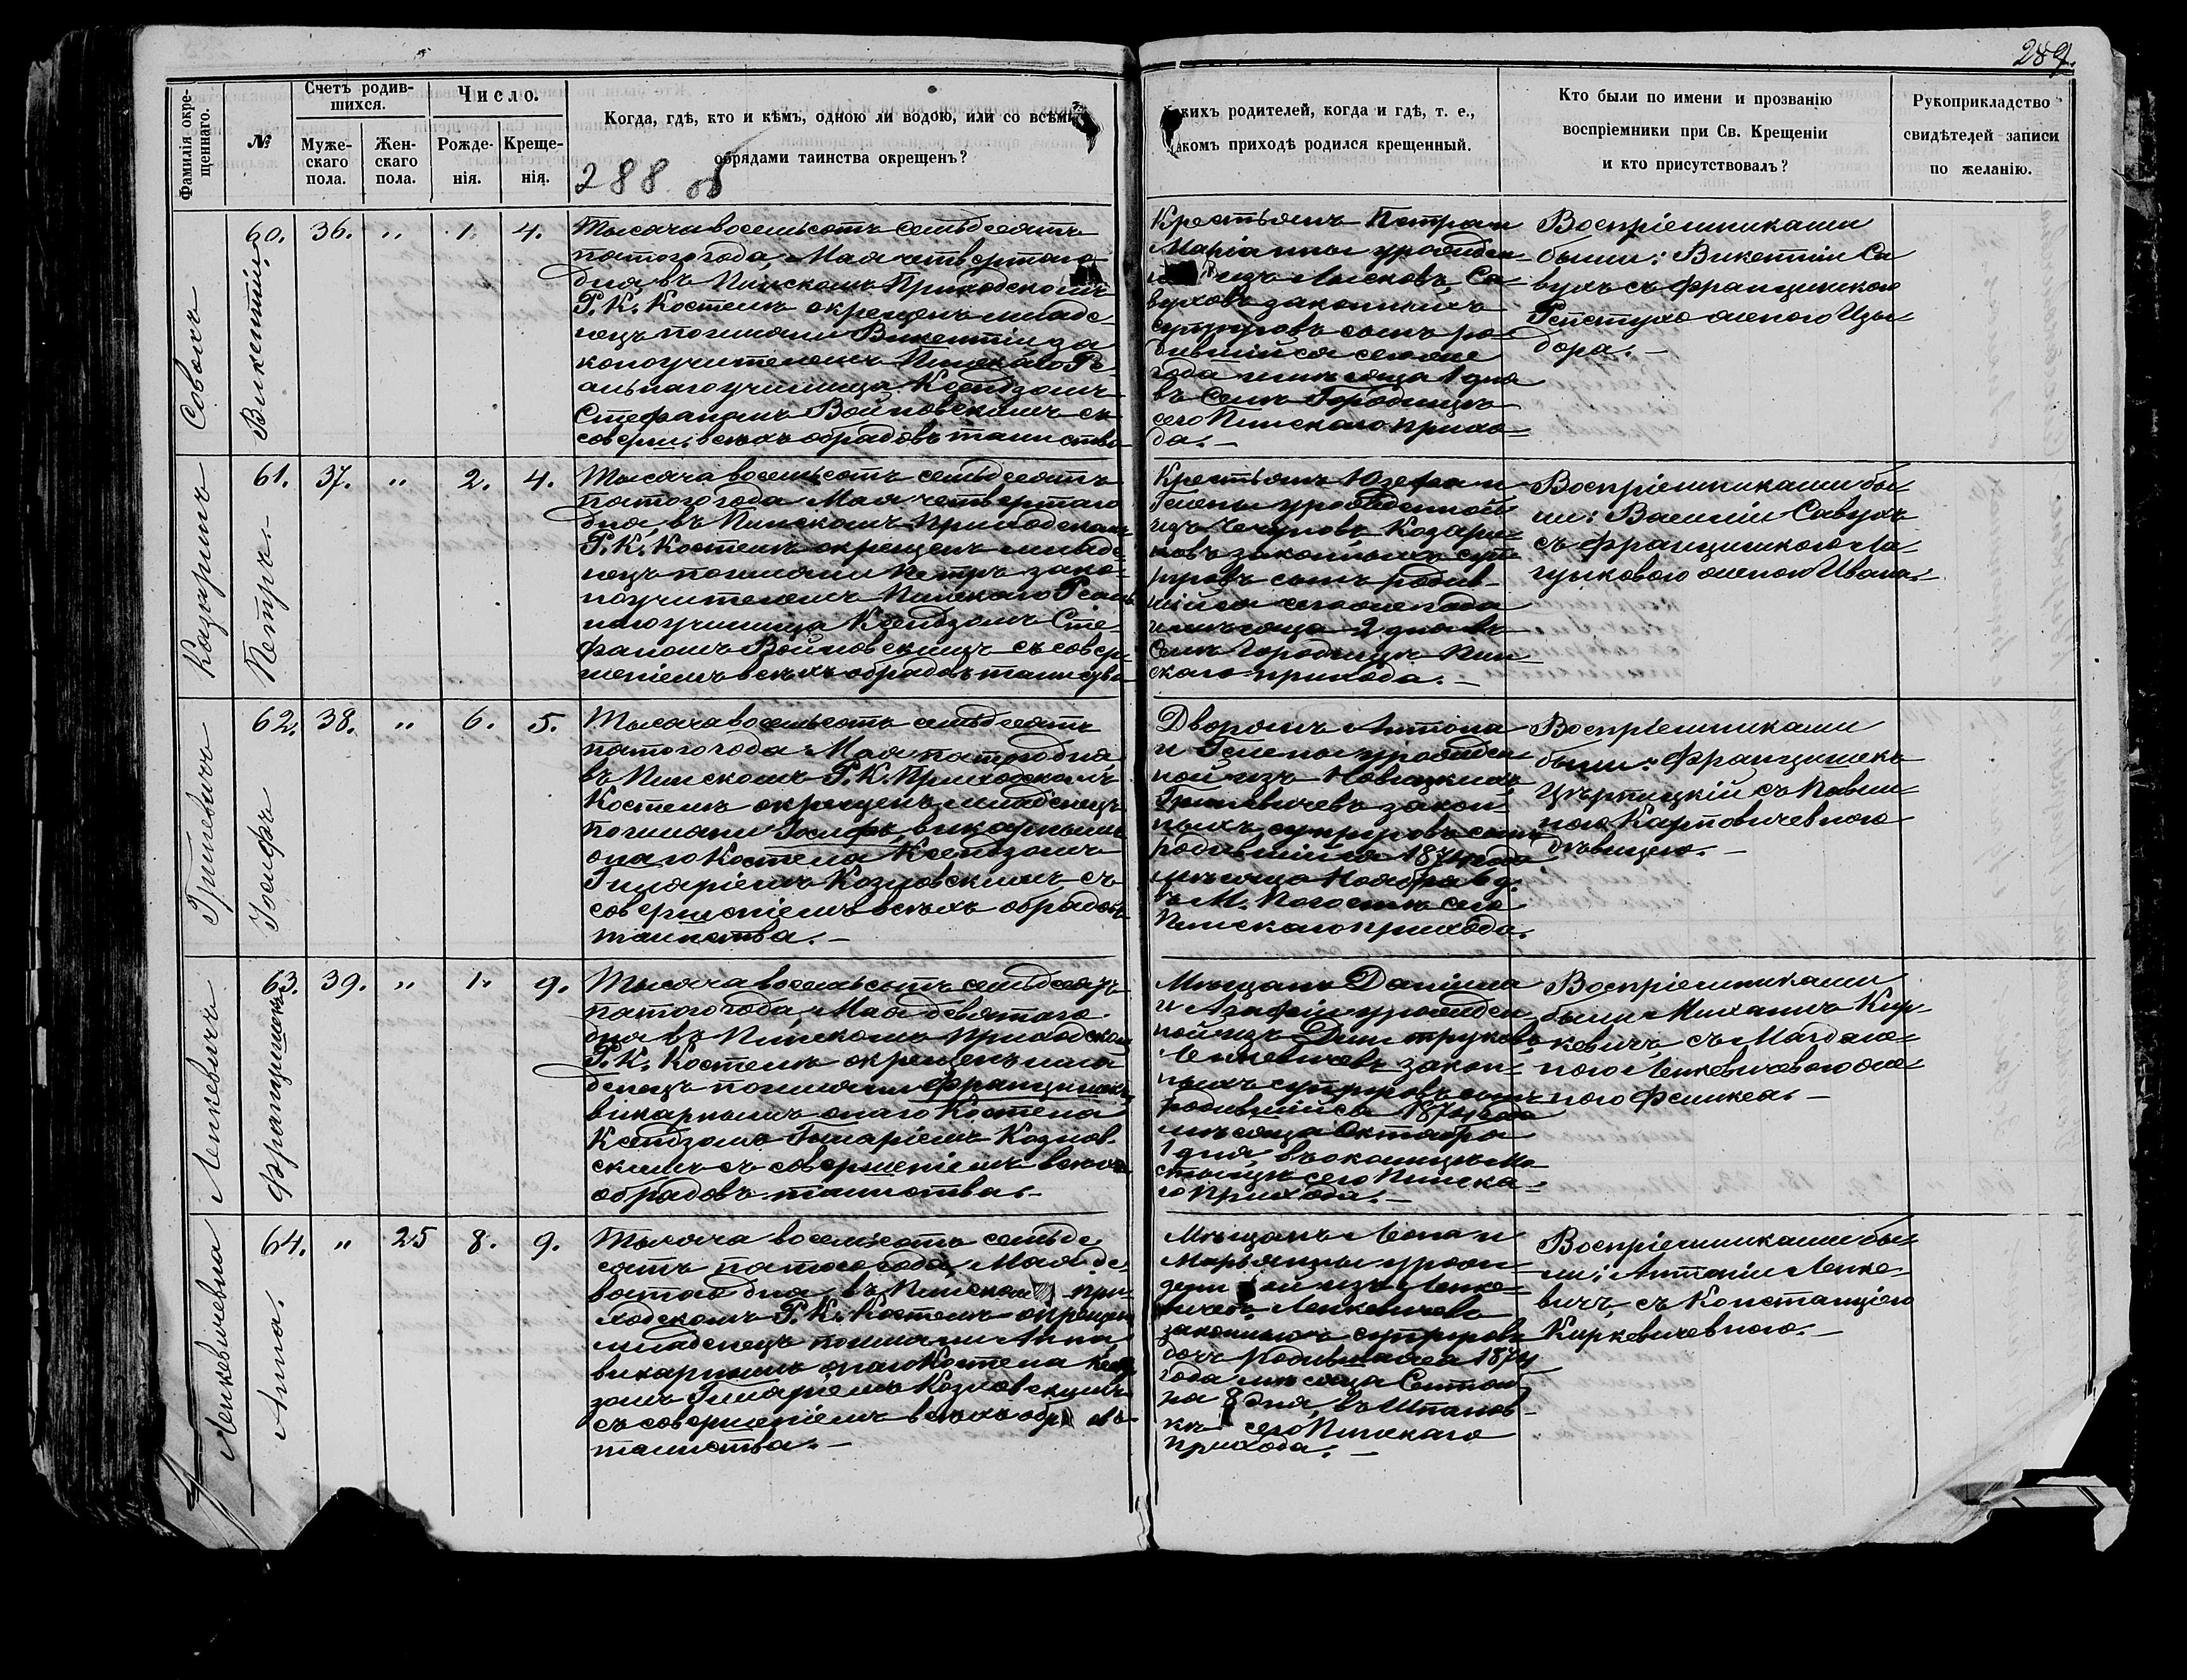 289.
Фамилія окре-
щеннаго.
№
Счетъ родив-
шихся.
Муже-
скаго
пола.
Жен-
скаго
пола.
Число.
Рожде-
нія.
Креще-
нія.
Когда, гдѣ, кто и кѣмъ, одною ли водою, или со всѣми
обрядами таинства окрещенъ?
288 об
какихъ родителей, когда и гдѣ, т. е.,
какомъ приходѣ родился крещенный.
Кто были по имени и прозванію
воспріемники при Св. Крещеніи
и кто присутствовалъ?
Рукоприкладство
свидѣтелей записи
по желанію.
Викентій.
60. 36. " 1. 4.
Тысяча восемьсотъ семьдесятъ
пятого года, Мая четвертаго
дня, въ Пинскомъ Приходскомъ
Р. К. Костелѣ окрещенъ младе-
нецъ по имени Викентій за
коноучителемъ Пинскаго Ре-
альнаго училища Ксендзомъ
Стефаномъ Войновскимъ съ
соверш: всѣхъ обрядовъ таинства
Крестьянъ Петра и
Маріанны урожден-
изъ Лысковъ, Са-
вуховъ законныхъ
супруговъ сынъ ро-
дившійся сего же
года и мѣсяца 1 дня
въ Селѣ Городищѣ
сего Пинскаго прихо-
да.
Воспріемниками
были: Викентій Са
вухъ съ Францишкою
женою Изы-
дора.
Казаринъ
Петръ.
61. 37. " 2. 4.
Тысяча восемьсотъ семьдесятъ
пятого года Мая четвертаго
дня, въ Пинскомъ Приходскомъ
Р. К. Костелѣ окрещенъ младе-
нецъ по имени Петръ зако-
ноучителемъ Пинскаго Реаль
наго училища Ксендзомъ Сте-
фаномъ Войновскимъ съ совер-
шеніемъ всѣхъ обрядовъ таинства
Крестьянъ Юзефа и
Гелены урожденной
изъ Казари-
новъ законныхъ суп-
руговъ сынъ родив-
шійся сего же года
и мѣсяца 2 дня въ
Селѣ Городищѣ Пин-
скаго прихода.
Воспріемниками бы-
ли: Василій Савухъ
съ Францишкою Ла-
гуновою женою Ивана.
Гриневичъ
Іосифъ
62. 38. " 6. 5.
Тысяча восемьсотъ семьдесятъ
пятого года Мая пятого дня,
въ Пинскомъ Р. К. Приходскомъ
Костелѣ окрещенъ младенецъ
по имени Іосифъ викарнымъ
онаго Костела Ксендзомъ
Гиляріемъ Козловскимъ съ
совершеніемъ всѣхъ обрядовъ
таинства.
Дворянъ Антона
и Гелены урожден-
ной изъ Новицкихъ,
Гриневичевъ закон-
ныхъ супруговъ сынъ
родившійся 1874 года
мѣсяца Ноября 6 д.
въ М. Погостѣ сего
Пинскаго прихода.
Воспріемниками
были: Францишекъ
съ Павли-
ною Карповичевною
дѣвицею.
Ленкевичъ
Францишекъ
63. 39. " 1. 9.
Тысяча восемьсотъ семьдесятъ
пятого года, Мая девятаго
дня въ Пинскомъ приходскомъ
Р. К. Костелѣ окрещенъ мла-
денецъ по имени Францишекъ,
викарнымъ онаго Костела
Ксендзомъ Гиляріемъ Козлов-
скимъ съ совершеніемъ всѣхъ
обрядовъ таинства.
Мѣщанъ Даніила
и Агафіи урожден-
ной изъ Дмитруковъ,
Ленкевичевъ закон-
ныхъ супруговъ сынъ
родившійся 1874 года
мѣсяца Октября
1 дня, въ околицѣ
сего Пинска-
го прихода.
Воспріемниками
были Михаилъ Кир-
кевичъ, съ Магдале-
ною Ленкевичевою же-
ною Феликса.
Ленкевичевна
Анна.
64. " 25 8. 9.
Тысяча восемьсотъ семьде
сятъ пятого года, Мая де-
вятаго дня, въ Пинскомъ при-
ходскомъ Р. К. Костелѣ окрещенъ
младенецъ по имени Анна,
викарнымъ онаго Костела Ксенд
зомъ Гиляріемъ Козловскимъ
съ совершеніемъ всѣхъ обрядовъ
таинства.
Мѣщанъ Леона и
Марьянны урож-
денной изъ Ленке-
вичевъ Ленкевичевъ
законныхъ супруговъ
дочь родившаяся 1874
года мѣсяца Сентяб
ря 8 дня, въ Шпанов-
кѣ сего Пинскаго
прихода.
Воспріемниками бы-
ли: Антоній Ленке-
вичъ, съ Констанціею
Киркевичевною.